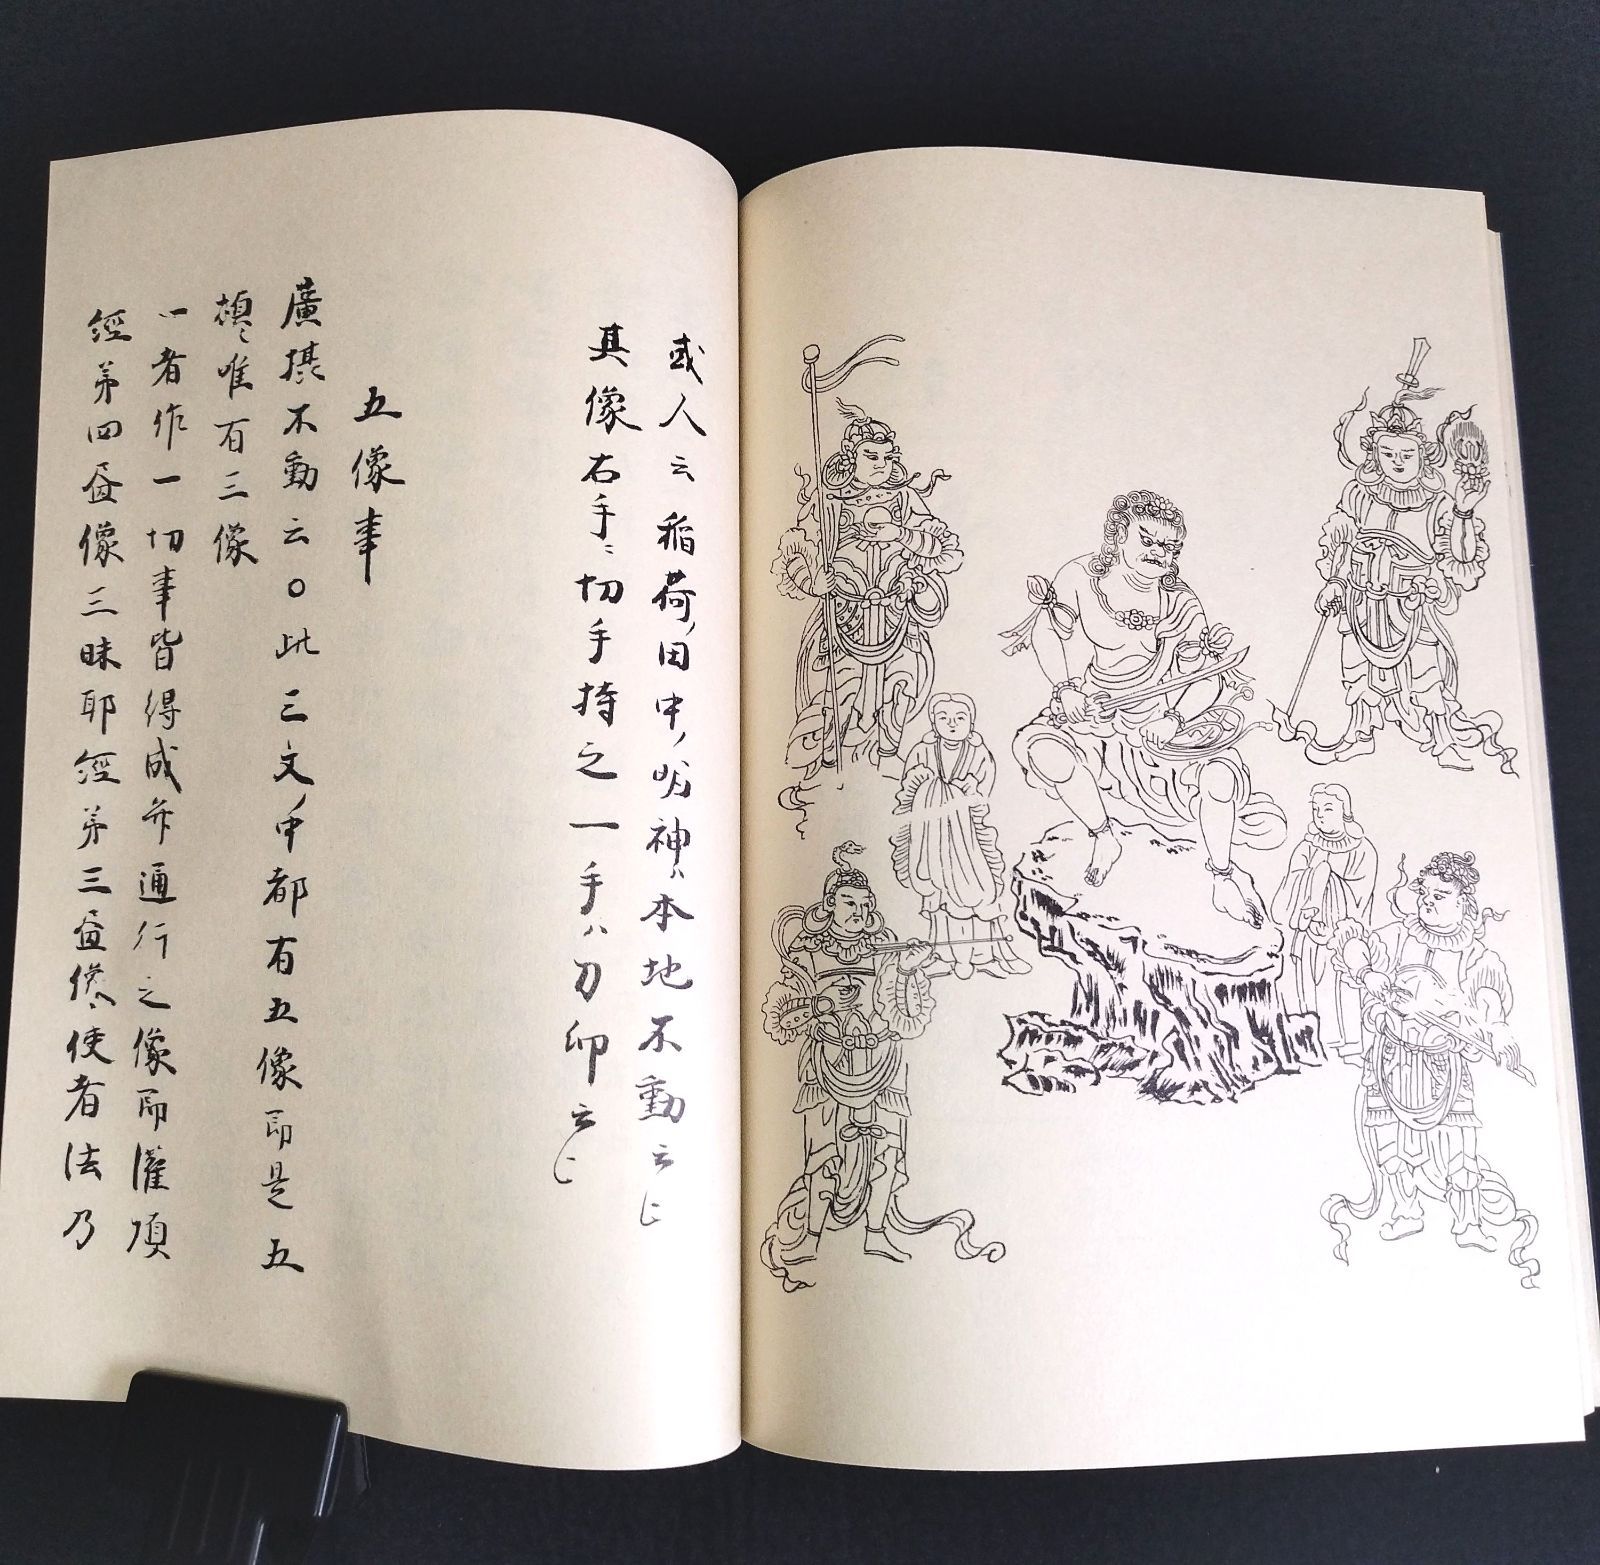 或人云稲荷田中明神ハ本地不動云々
其像右手ニ切手持之一手ハ刀印云々
五像事
廣摂不動云〇此三文中都有五像即是五
様々唯有三像
一者作一切事皆得成并通行之像即灌頂
經第四畫像三昧耶經第三畫像ハ使者法乃